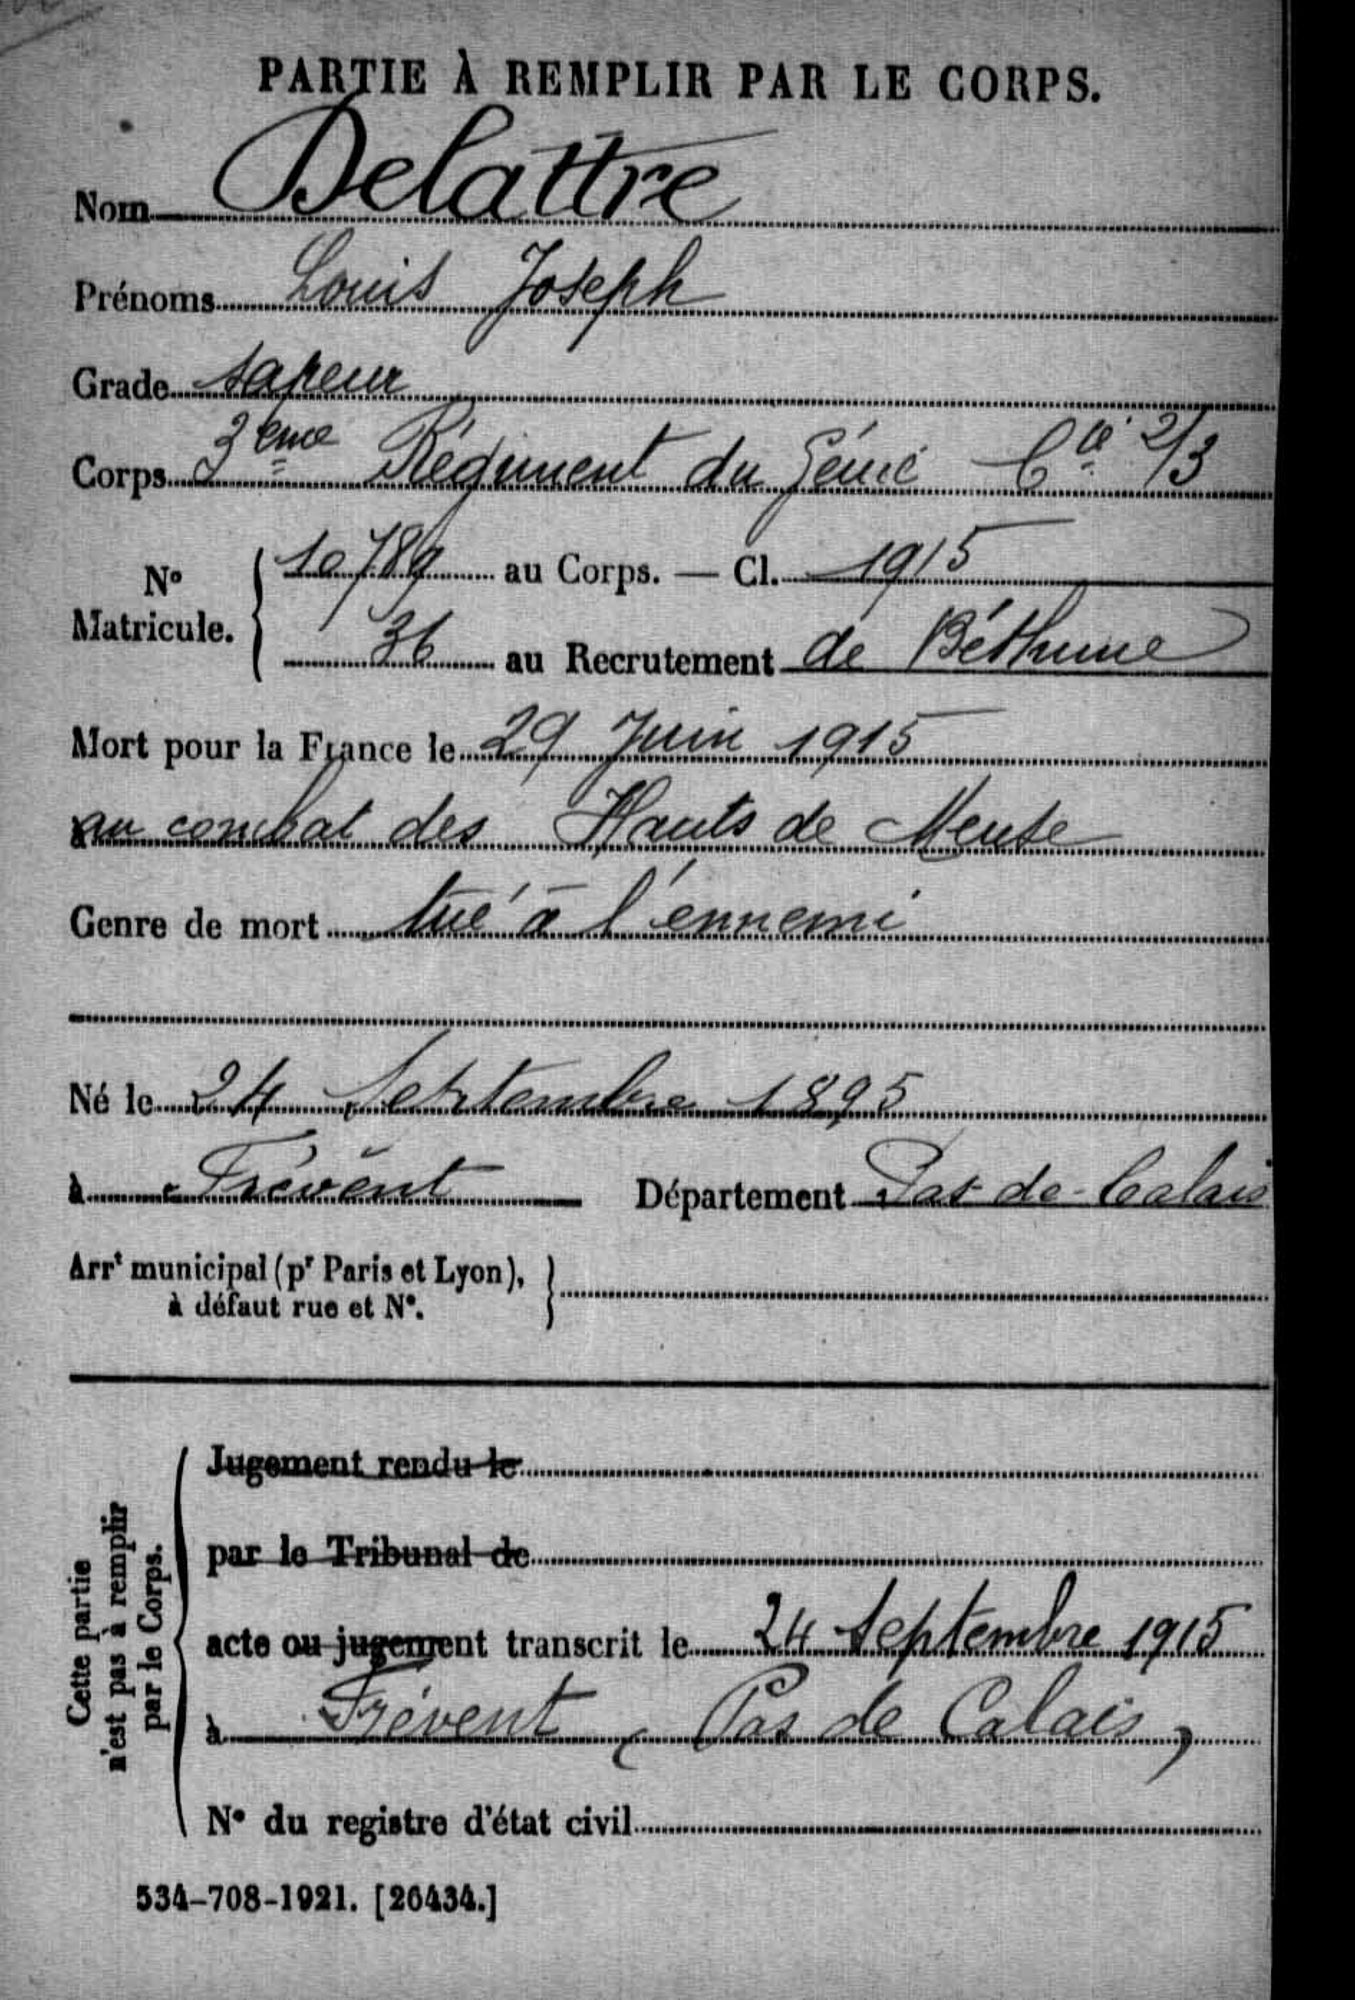 PARTIE À REMPLIR PAR LE CORPS.
Nom Delattre
Prénoms Louis Joseph
Grade sapeur
Corps 3ème Régiment du Génie Cie 2/3
N° Matricule. 10789 au Corps. — Cl. 1915
36 au Recrutement de Béthune
Mort pour la France le 29 Juin 1915
au combat des Hauts de Meuse
Genre de mort tué à l'ennemi
Né le 24 Septembre 1895
à Frévent Département Pas-de-Calais
Arrt municipal (pr Paris et Lyon),
à défaut rue et N°.
Cette partie
n'est pas à remplir
par le Corps.
Jugement rendu le
par le Tribunal de
acte ou jugement transcrit le 24 Septembre 1915
à Frévent (Pas de Calais)
N° du registre d'état civil
534-708-1921. [26434.]